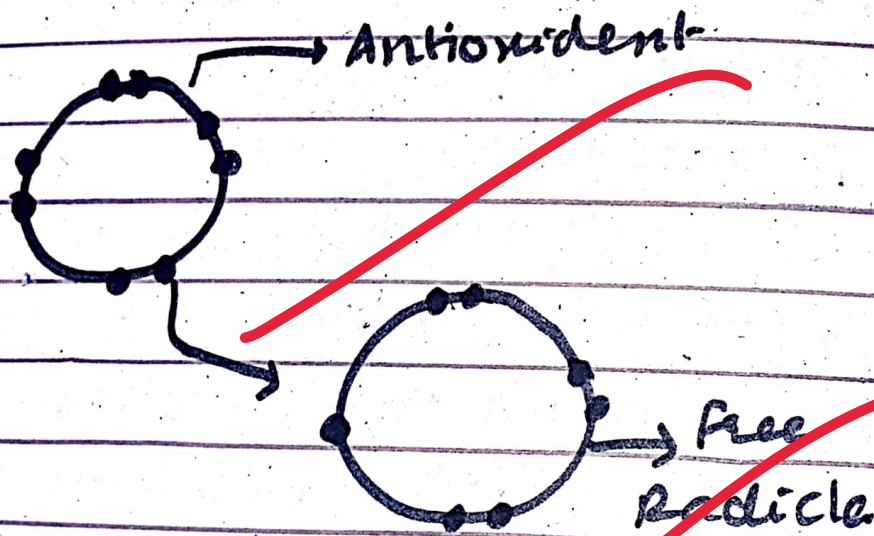 Antioxident
Free
Radicle